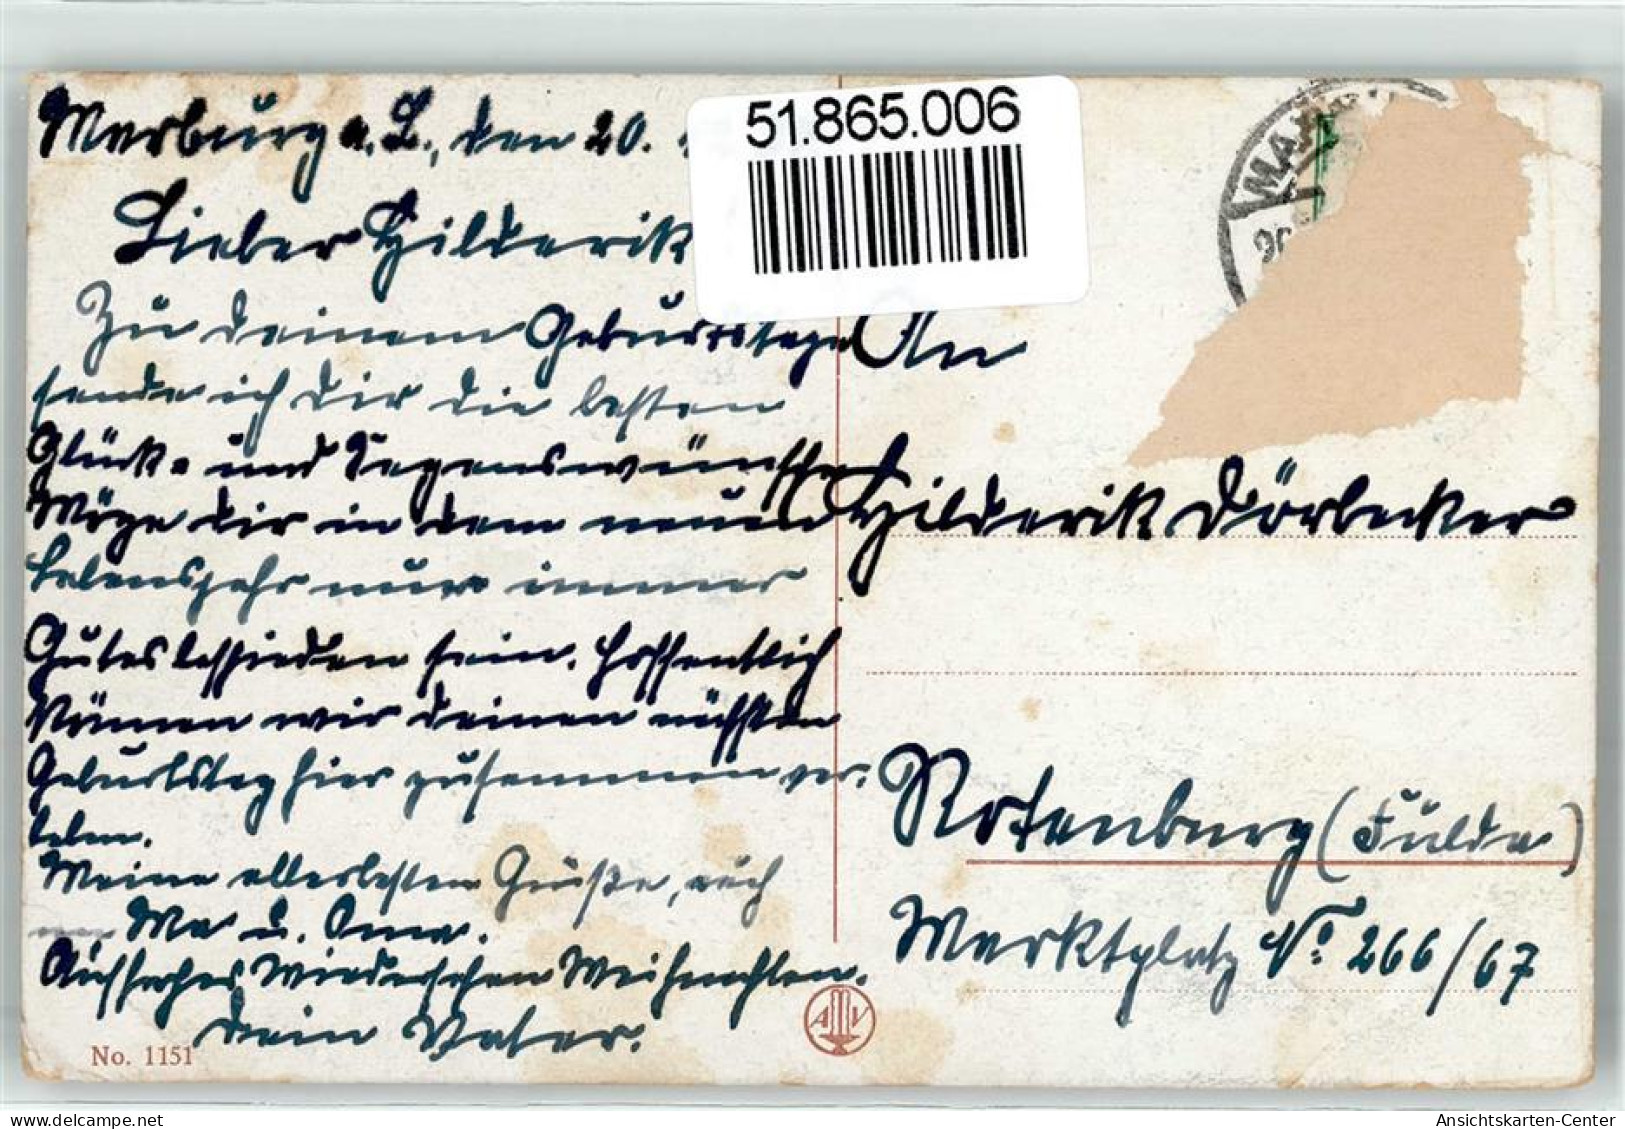 Marburg a. L., den 20.
Lieber Hilderik
Zu deinem Geburtstage
sende ich dir die besten
Glück- und Segenswünsche!
Möge dir in dem neuen
Lebensjahr nur immer
Gutes beschieden sein. Hoffentlich
können wir deinen nächsten
Geburtstag hier zusammen ver-
leben.
Meine allerbesten Grüße, auch
von Ma u. Oma.
Auf frohes Wiedersehen Weihnachten.
Dein Vater.
No. 1151
51.865.006
MAR
An
Hilderik Dörbecker
Rotenburg (Fulda)
Marktplatz No. 266/67
A V
www.delcampe.net
Ansichtskarten-Center